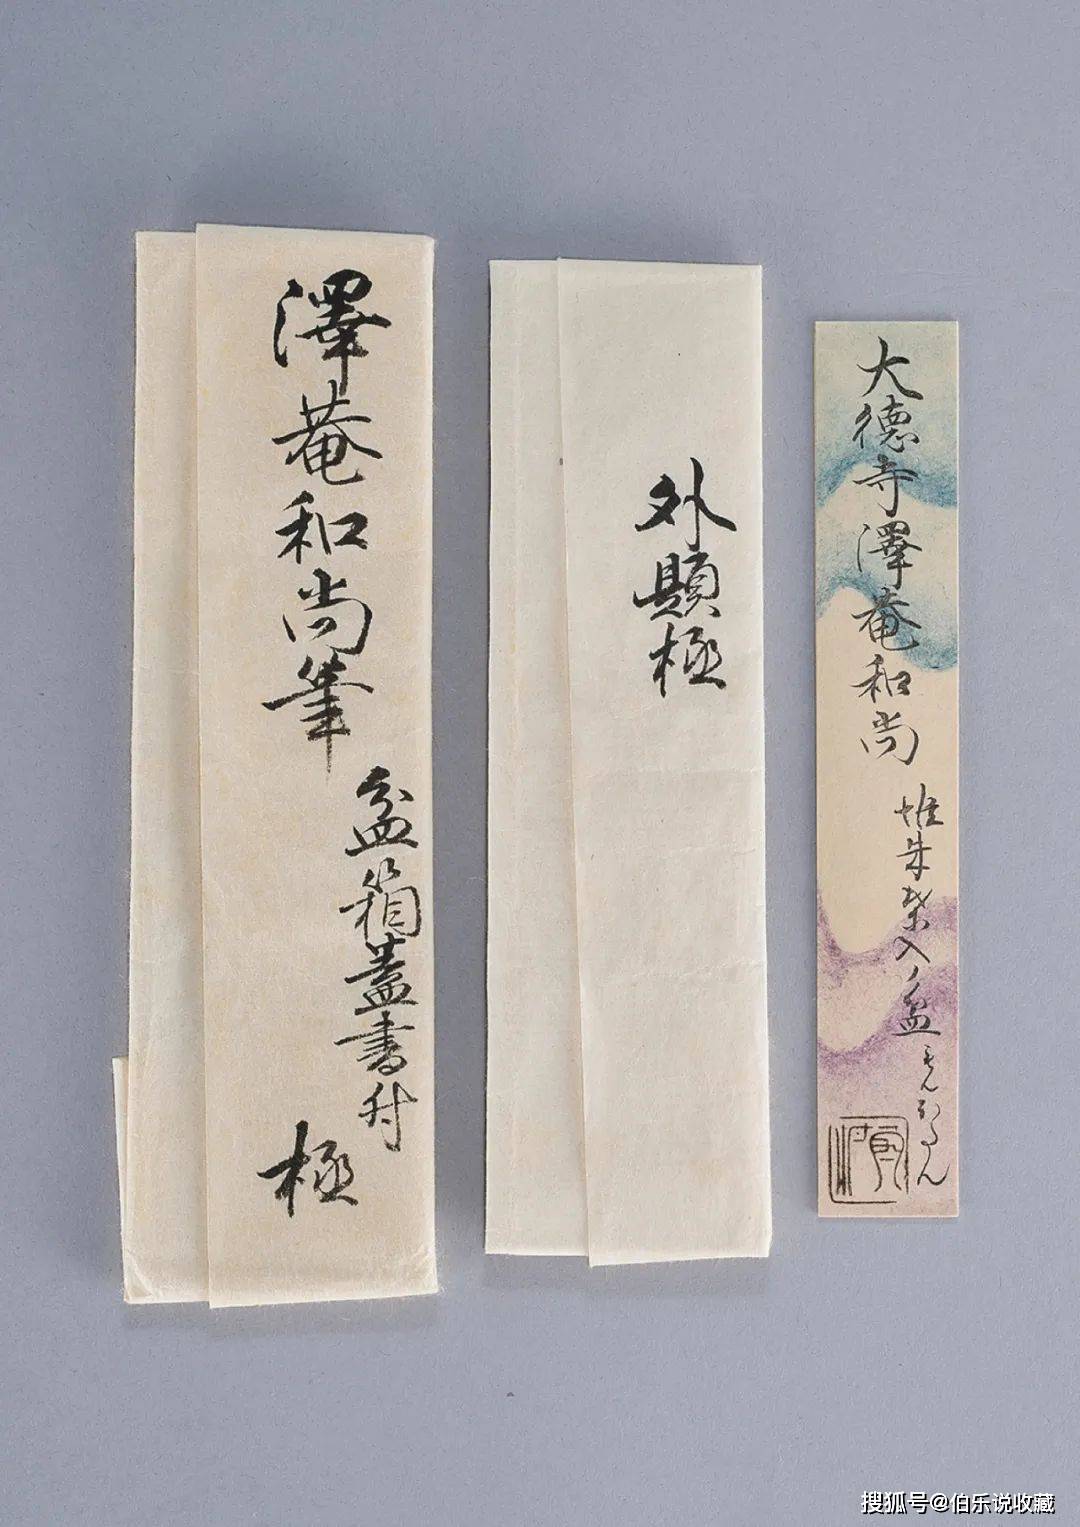 澤菴和尚筆
盆箱蓋書付
極
外題極
大德寺澤菴和尚
堆朱
入ノ盆
搜狐号@伯乐说收藏